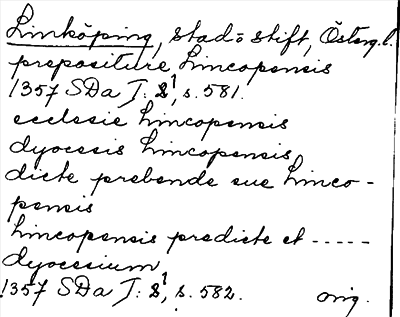 Linköping, stad o stift, Österg.l.
prepositure Lincopensis
1357 SDa I: 8¹, s. 581.
ecclesie Lincopensis
dyocesis Lincopensis
dicte prebende sue Linco-
pensis
Lincopensis predicte et -----
dyocesium
1357 SDa I: 8¹, s. 582. orig.